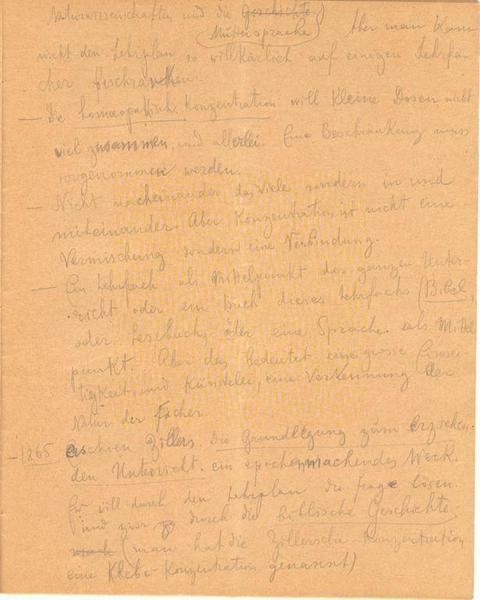 Naturwissenschaften und die Geschichte)
(Muttersprache) Aber man kann
nicht den Lehrplan so willkürlich auf einigen Lehrfä-
cher beschränken.
— Die homeopatische Konzentration will kleine Dosen nicht
viel zusammen, und allerlei. Eine Beschränkung muss
vorgenommen werden.
— Nicht nacheinander das Viele sondern in und
miteinander. Aber Konzentration ist nicht eine
Vermischung sondern eine Verbindung.
— Ein Lehrfach als Mittelpunkt des ganzen Unter-
richt oder ein Buch dieses Lehrfachs (Bibel,
oder Lesebuch, oder eine Sprache als Mittel
punkt. Aber das bedeutet eine grosse Einsei-
tigkeit, und Künstelei, eine Verkennung der
Natur der Fächer
— 1865 erschien Zillers, Die Grundlegung zum erziehen-
den Unterricht. ein epochenmachendes Werk.
Er will durch den Lehrplan die Frage lösen.
und zwar durch die biblische Geschichte;
(man hat die Zillersche Konzentration
eine Klebe-Konzentration genannt)